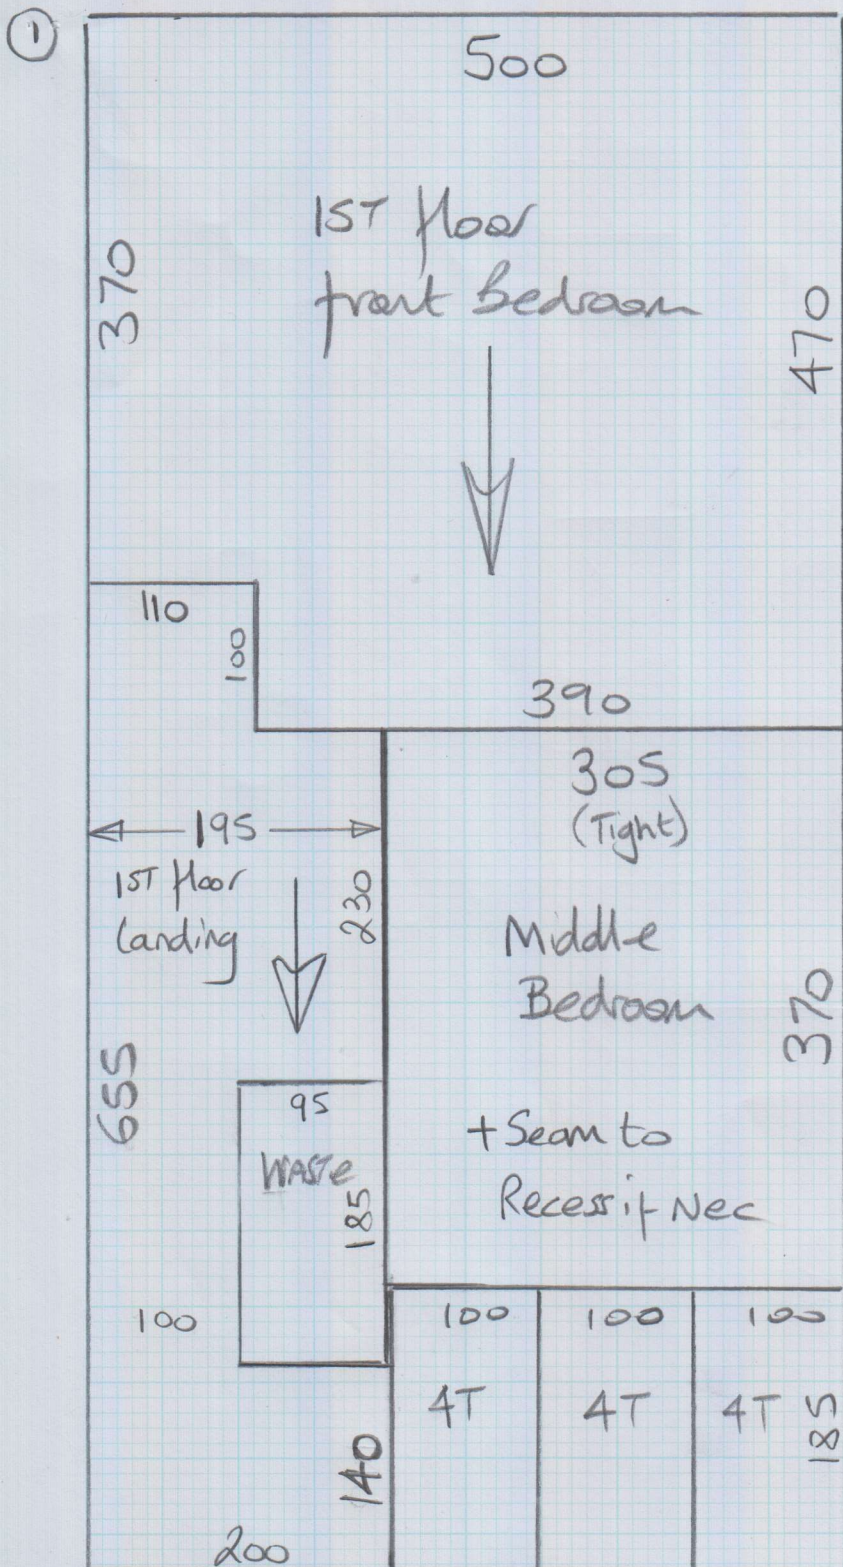 1
500
1ST floor
front Bedroom
370
470
110
100
390
305
(Tight)
195
1ST floor
Landing
230
Middle
Bedroom
370
655
95
WASTE
185
+ Seam to
Recess if Nec
100
100
100
100
4T
4T
4T
185
140
200